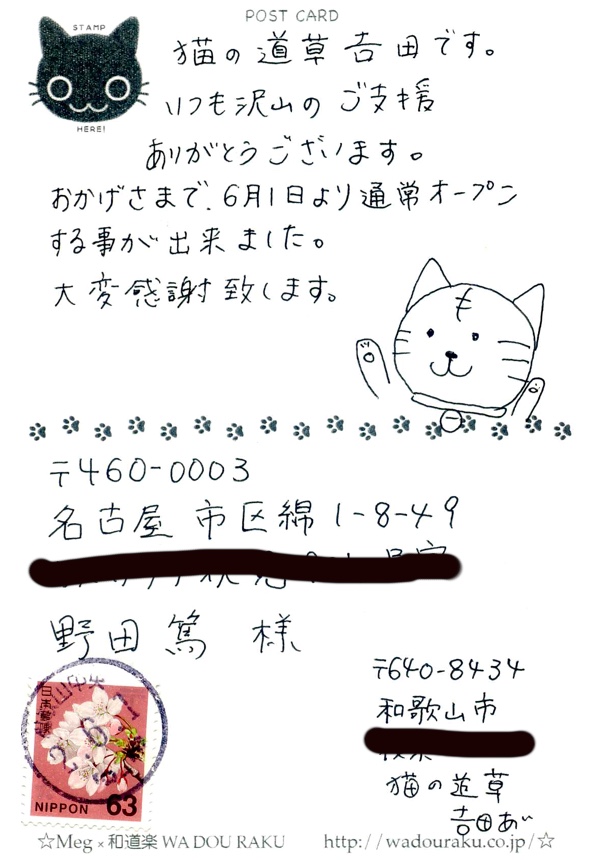 POST CARD
STAMP
HERE!
猫の道草 吉田です。
いつも沢山の ご支援
ありがとうございます。
おかげさまで、6月1日より通常オープン
する事が出来ました。
大変感謝致します。
〒460-0003
名古屋市区綿1-8-49
野田篤 様
〒640-8434
和歌山市
猫の道草
吉田あ
日本郵便
山中央
2.6
NIPPON 63
☆Meg×和道楽 WA DOU RAKU http://wadouraku.co.jp/☆